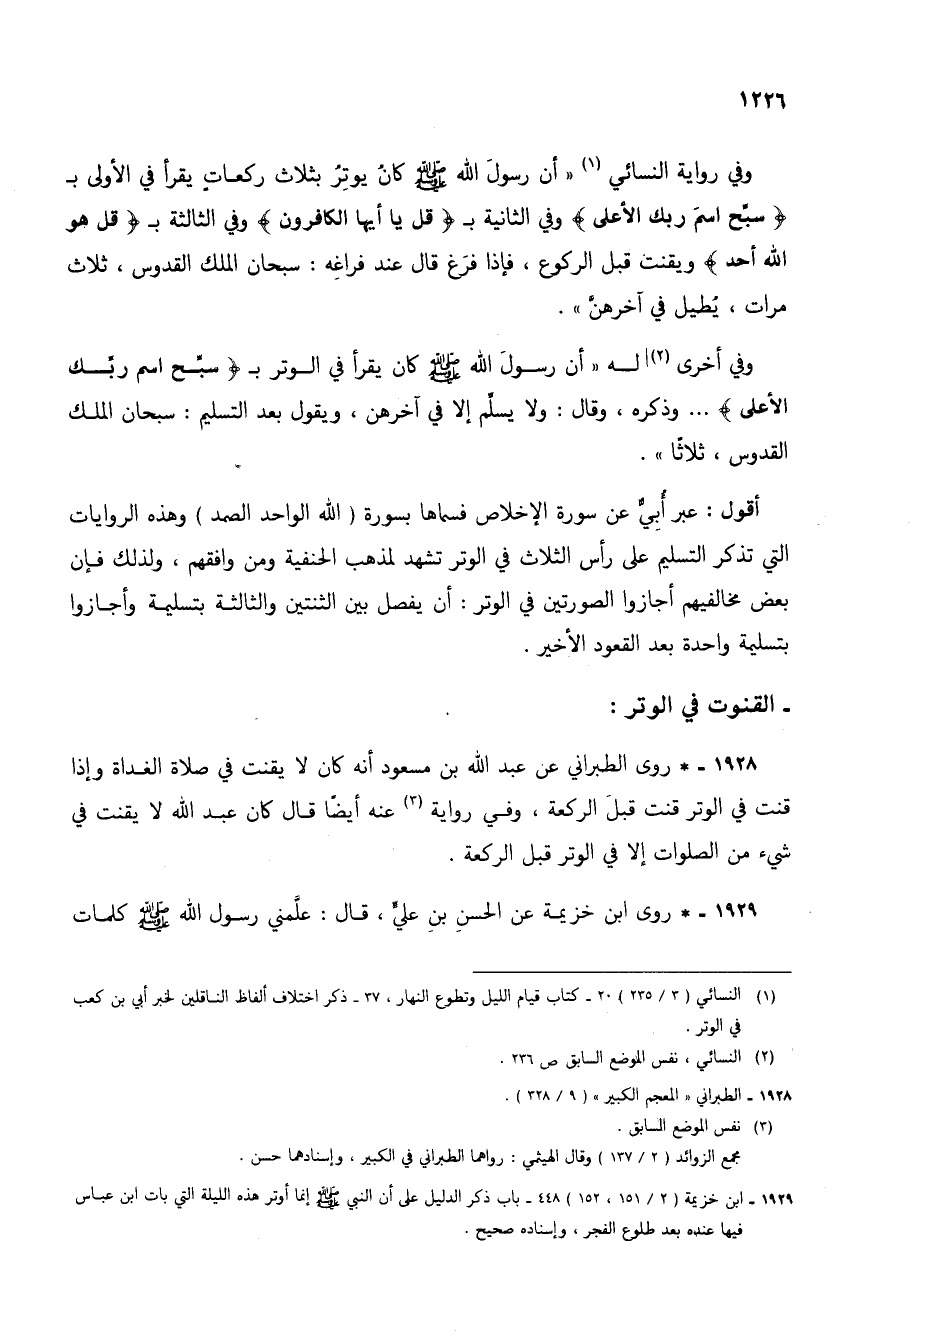 ١٢٢٦
وفي رواية النسائي (١) « أن رسولَ الله ﷺ كانَ يوتِرُ بثلاث ركعـاتٍ يقرأ في الأولى بـ
﴿ سبِّح اسمَ ربك الأعلى ﴾ وفي الثانية بـ ﴿ قل يا أيها الكافرون ﴾ وفي الثالثة بـ ﴿ قل هو
الله أحد ﴾ ويقنت قبل الركوع ، فإذا فرَغ قال عند فراغِه : سبحان الملك القدوس ، ثلاث
مرات ، يُطيل في آخرهنَّ » .
وفي أخرى (٢) لـه « أن رسـولَ الله ﷺ كان يقرأ في الـوتر بـ ﴿ سبِّـح اسم ربِّـك
الأعلى ﴾ ... وذكره ، وقال : ولا يسلِّم إلا في آخرهن ، ويقول بعد التسليم : سبحان الملـك
القدوس ، ثلاثًا » .
أقول : عبر أُبيٌّ عن سورة الإخلاص فسماها بسورة ( الله الواحد الصمد ) وهذه الروايات
التي تذكر التسليم على رأس الثلاث في الوتر تشهد لمذهب الحنفية ومن وافقهم ، ولذلك فـإن
بعض مخالفيهم أجازوا الصورتين في الوتر : أن يفصل بين الثنتين والثالثـة بتسليمـة وأجـازوا
بتسليمة واحدة بعد القعود الأخير .
ـ القنوت في الوتر :
١٩٢٨ ـ * روى الطبراني عن عبد الله بن مسعود أنه كان لا يقنت في صلاة الغـداة وإذا
قنت في الوتر قنت قبلَ الركعة ، وفـي رواية (٣) عنه أيضًا قـال كان عبـد الله لا يقنت في
شيء من الصلوات إلا في الوتر قبل الركعة .
١٩٢٩ ـ * روى ابن خزيمـة عن الحسنِ بنِ عليٍّ ، قـال : علَّمني رسول الله ﷺ كلمـات
(١) النسائي ( ٣ / ٢٣٥ ) ٢٠ ـ كتاب قيام الليل وتطوع النهار ، ٣٧ ـ ذكر اختلاف ألفاظ النـاقلين لخبر أبي بن كعب
في الوتر .
(٢) النسائي ، نفس الموضع السابق ص ٢٣٦ .
١٩٢٨ ـ الطبراني « المعجم الكبير » ( ٩ / ٣٢٨ ) .
(٣) نفس الموضع السابق .
مجمع الزوائد ( ٢ / ١٣٧ ) وقال الهيثمي : رواهما الطبراني في الكبير ، وإسنادهما حسن .
١٩٢٩ ـ ابن خزيمة ( ٢ / ١٥١ ، ١٥٢ ) ٤٤٨ ـ باب ذكر الدليل على أن النبي ﷺ إنما أوتر هذه الليلة التي بات ابن عبـاس
فيها عنده بعد طلوع الفجر ، وإسناده صحيح .